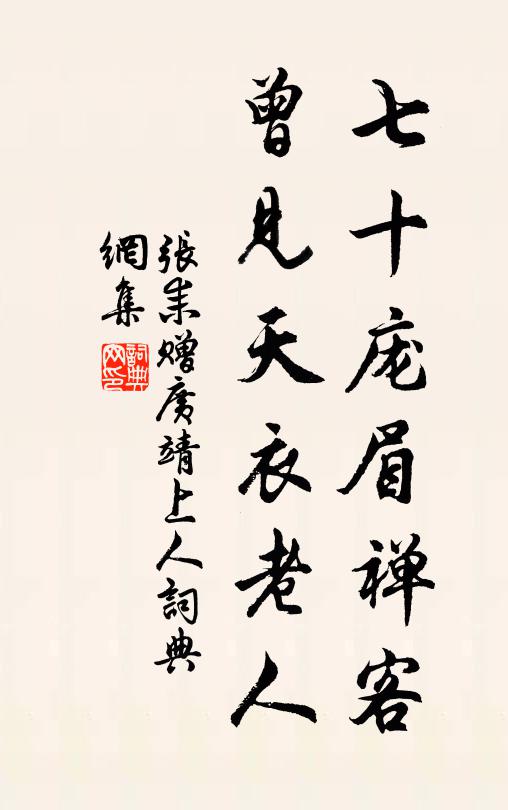 七十庞眉禅客
曾見天衣老人
張耒赠廣靖上人詞典
網集
詞典
网印